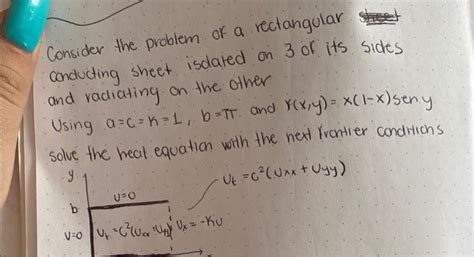 Consider the problem of a rectangular
conducting sheet isolated on 3 of its sides
and radiating on the other
Using a=c=K=1, b=π and f(x,y)= x(1-x)seny
solve the heat equation with the next frontier conditions
y
Ut = c²(Uxx + Uyy)
U=0
b
U=0 Ut = c²(Uxx + Uyy) Ux = -KU